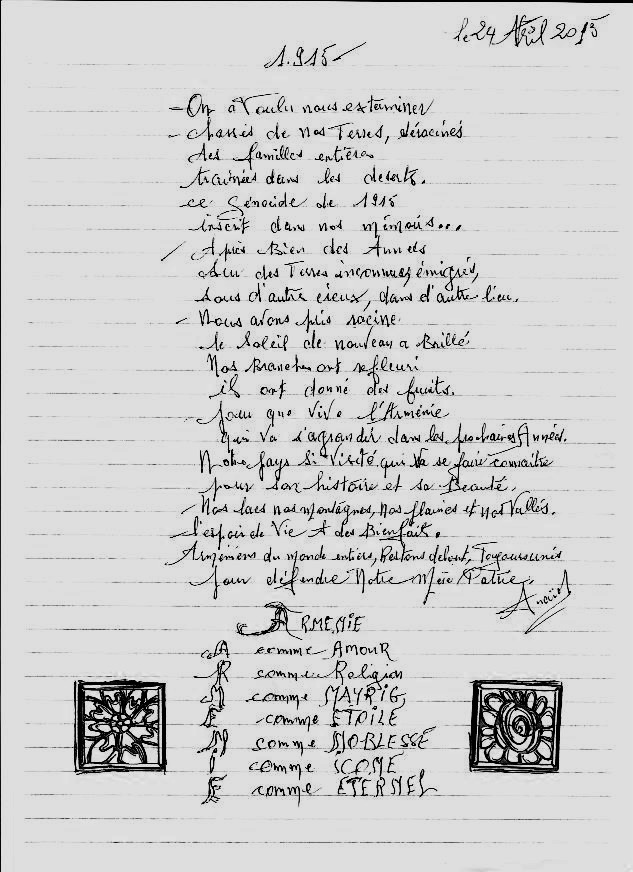 le 24 Avril 2015
1.915
- On à Voulu nous exterminer
- chassés de nos Terres, déracinés
des familles entières
trainées dans les deserts.
ce Génocide de 1915
inscrit dans nos mémoirs...
/ Après Bien des Années
sur des Terres inconnues, émigrés,
sous d'autre cieux, dans d'autre lieu.
- Nous avons pris racine
le Soleil de nouveau a Brillé
Nos Branches ont refleuri
ils ont donné des fruits.
- pour que vive l'Arménie
qui va s'agrandir dans les prochaines Années.
Notre pays Si visité qui va se faire connaitre
pour son histoire et sa Beauté.
- Nos lacs nos montagnes, nos plaines et nos Vallés.
- l'espoir de Vie et des Bienfait.
Arméniens du monde entiers, Restons debout, Toujours unis
pour défendre Notre Mère Patrie.
ARMENIE
A comme AMOUR
R comme Religion
M comme MAYRIG
E comme ETOILE
N comme NOBLESSE
I comme ICONE
E comme ETERNEL